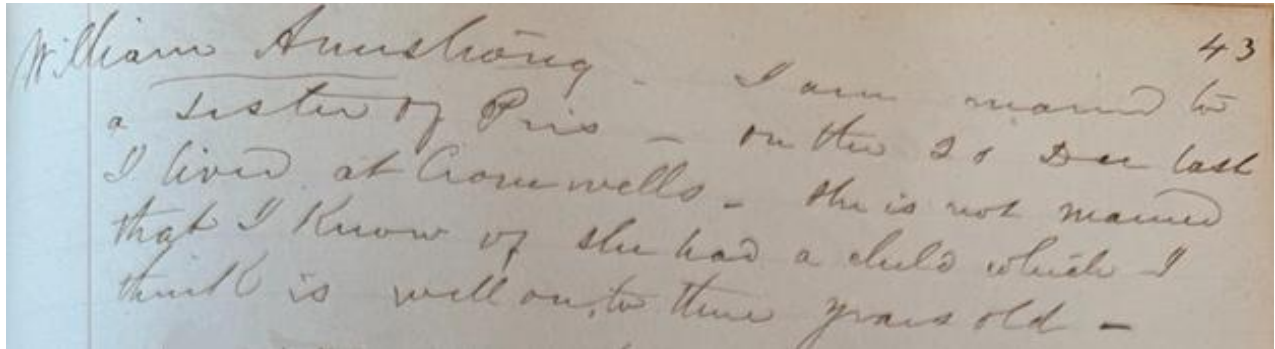 43
William Armstrong - I am married to
a sister of Pris - on the 20 Dec last
I lived at Cromwells - she is not married
that I Know of she had a child which I
think is well on to three years old -